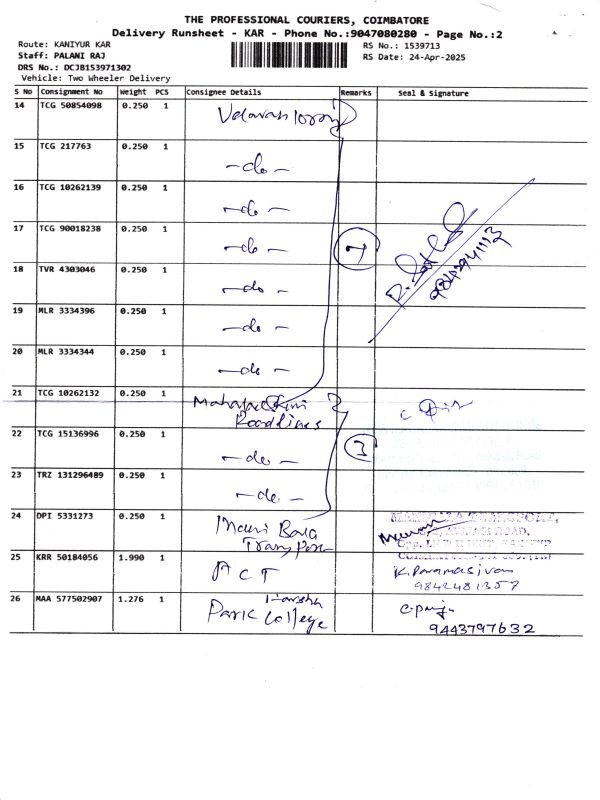 THE PROFESSIONAL COURIERS, COIMBATORE
Delivery Runsheet - KAR - Phone No.:9047080280 - Page No.:2
Route: KANIYUR KAR
RS No.: 1539713
Staff: PALANI RAJ
RS Date: 24-Apr-2025
DRS No.: DCJB153971302
Vehicle: Two Wheeler Delivery
S No Consignment No Weight PCS Consignee Details Remarks Seal & Signature
14 TCG 50854098 0.250 1
15 TCG 217763 0.250 1 -do-
16 TCG 10262139 0.250 1 -do-
17 TCG 90018238 0.250 1 -do- 7
18 TVR 4303046 0.250 1 -do-
19 MLR 3334396 0.250 1 -do-
20 MLR 3334344 0.250 1 -do-
21 TCG 10262132 0.250 1
Roadlines
22 TCG 15136996 0.250 1 -do- 3
23 TRZ 131296489 0.250 1 -do-
24 DPI 5331273 0.250 1
25 KRR 50184056 1.990 1 A C T K. Paramasivam
9842481357
26 MAA 577502907 1.276 1
Park College
9443797632